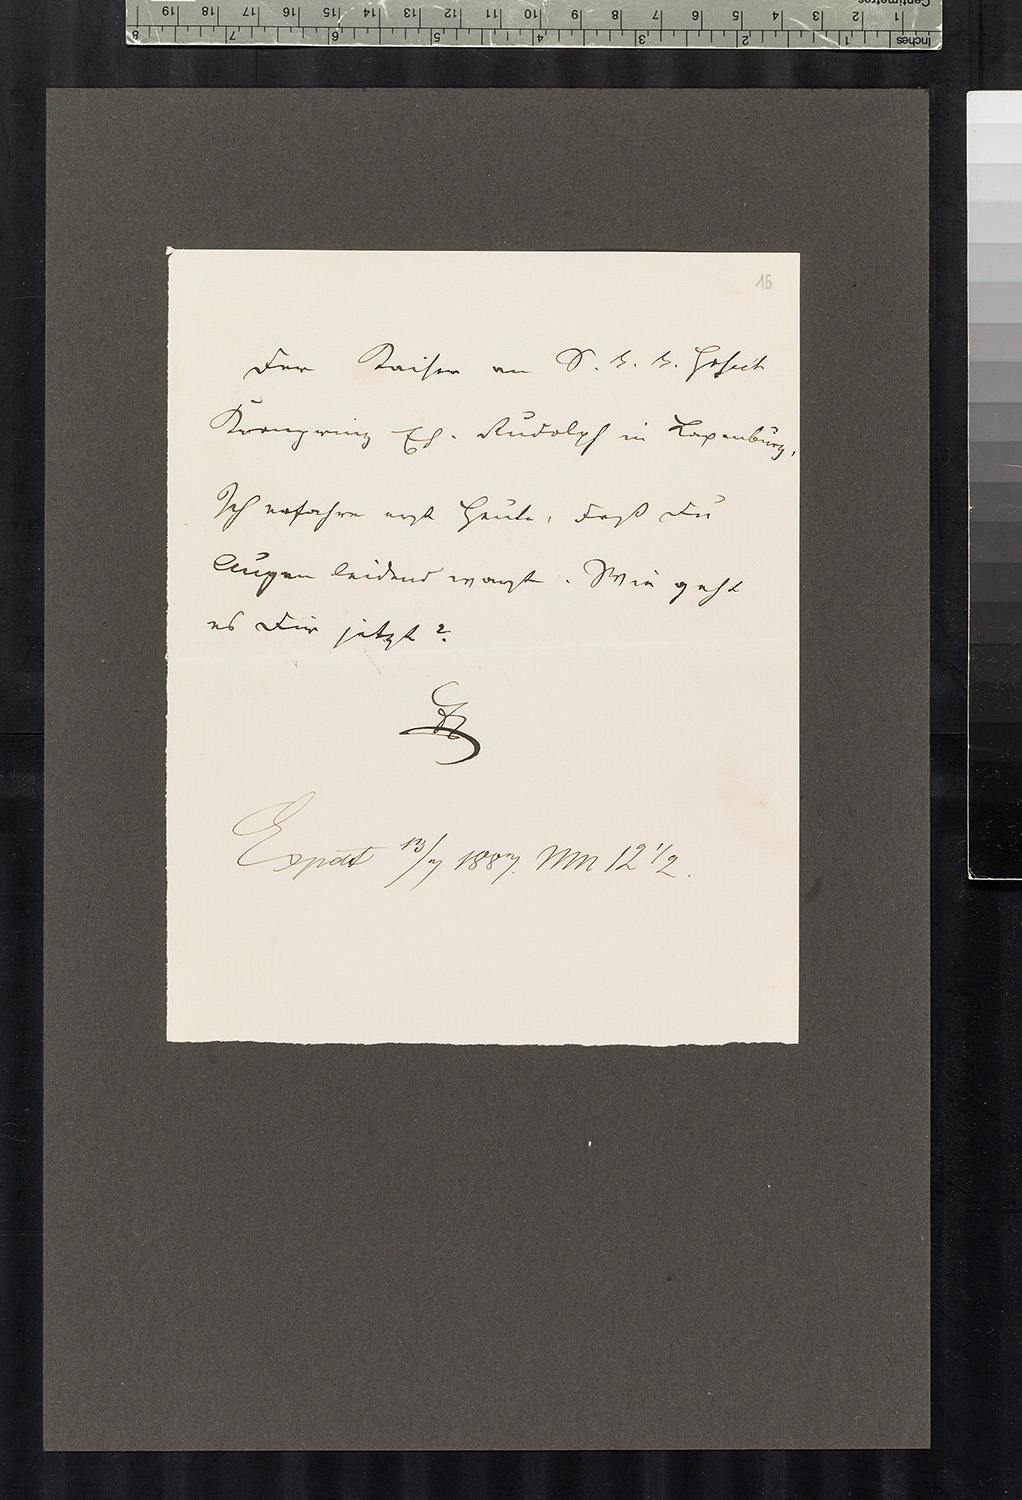 Centimetres 1 2 3 4 5 6 7 8 9 10 11 12 13 14 15 16 17 18 19
Inches 1 2 3 4 5 6 7 8
16
Der Kaiser an S. k. k. Hoheit
Kronprinz Eh. Rudolph in Laxenburg.
Ich erfahre erst heute, daß Du
Augen leidend warst. Wie geht
es Dir jetzt?
Expdt 13/7 1887. Mn 12 1/2.